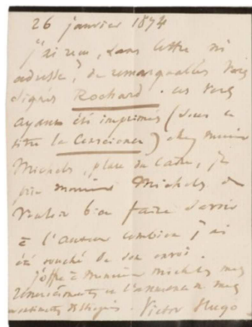 26 janvier 1874
j'ai reçu, sans lettre ni
adresse, de remarquables vers
signés Rochard. ces vers
ayant été imprimés (sous le
titre la ) chez monsieur
Michels, place du Caire, je
prie monsieur Michels de
vouloir bien faire savoir
à l'auteur combien j'ai
été touché de son envoi.
j'offre à monsieur Michels mes
et l'assurance de mes
Victor Hugo